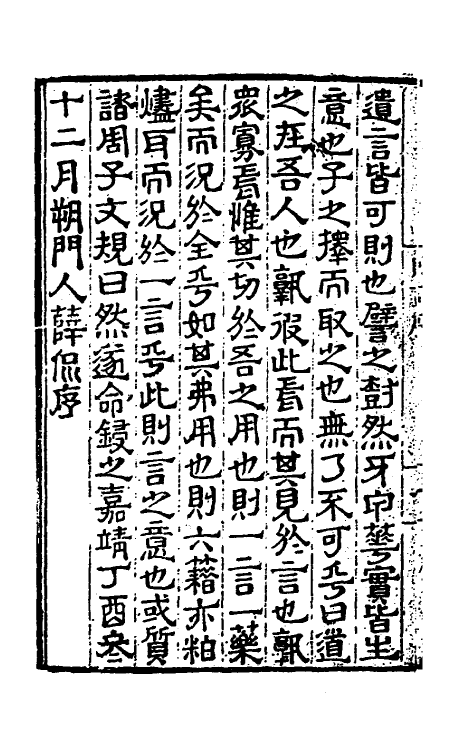 遺言皆可則也譬之尌然牙甲華實皆生
意也子之擇而取之也無乃不可乎曰道
之在吾人也孰彼此焉而其見於言也孰
衆寡焉惟其切於吾之用也則一言一藥
矣而況於全乎如其弗用也則六籍亦粕
燼耳而況於一言乎此則言之意也或質
諸周子文規曰然遂命鋟之嘉靖丁酉冬
十二月朔門人薛侃序